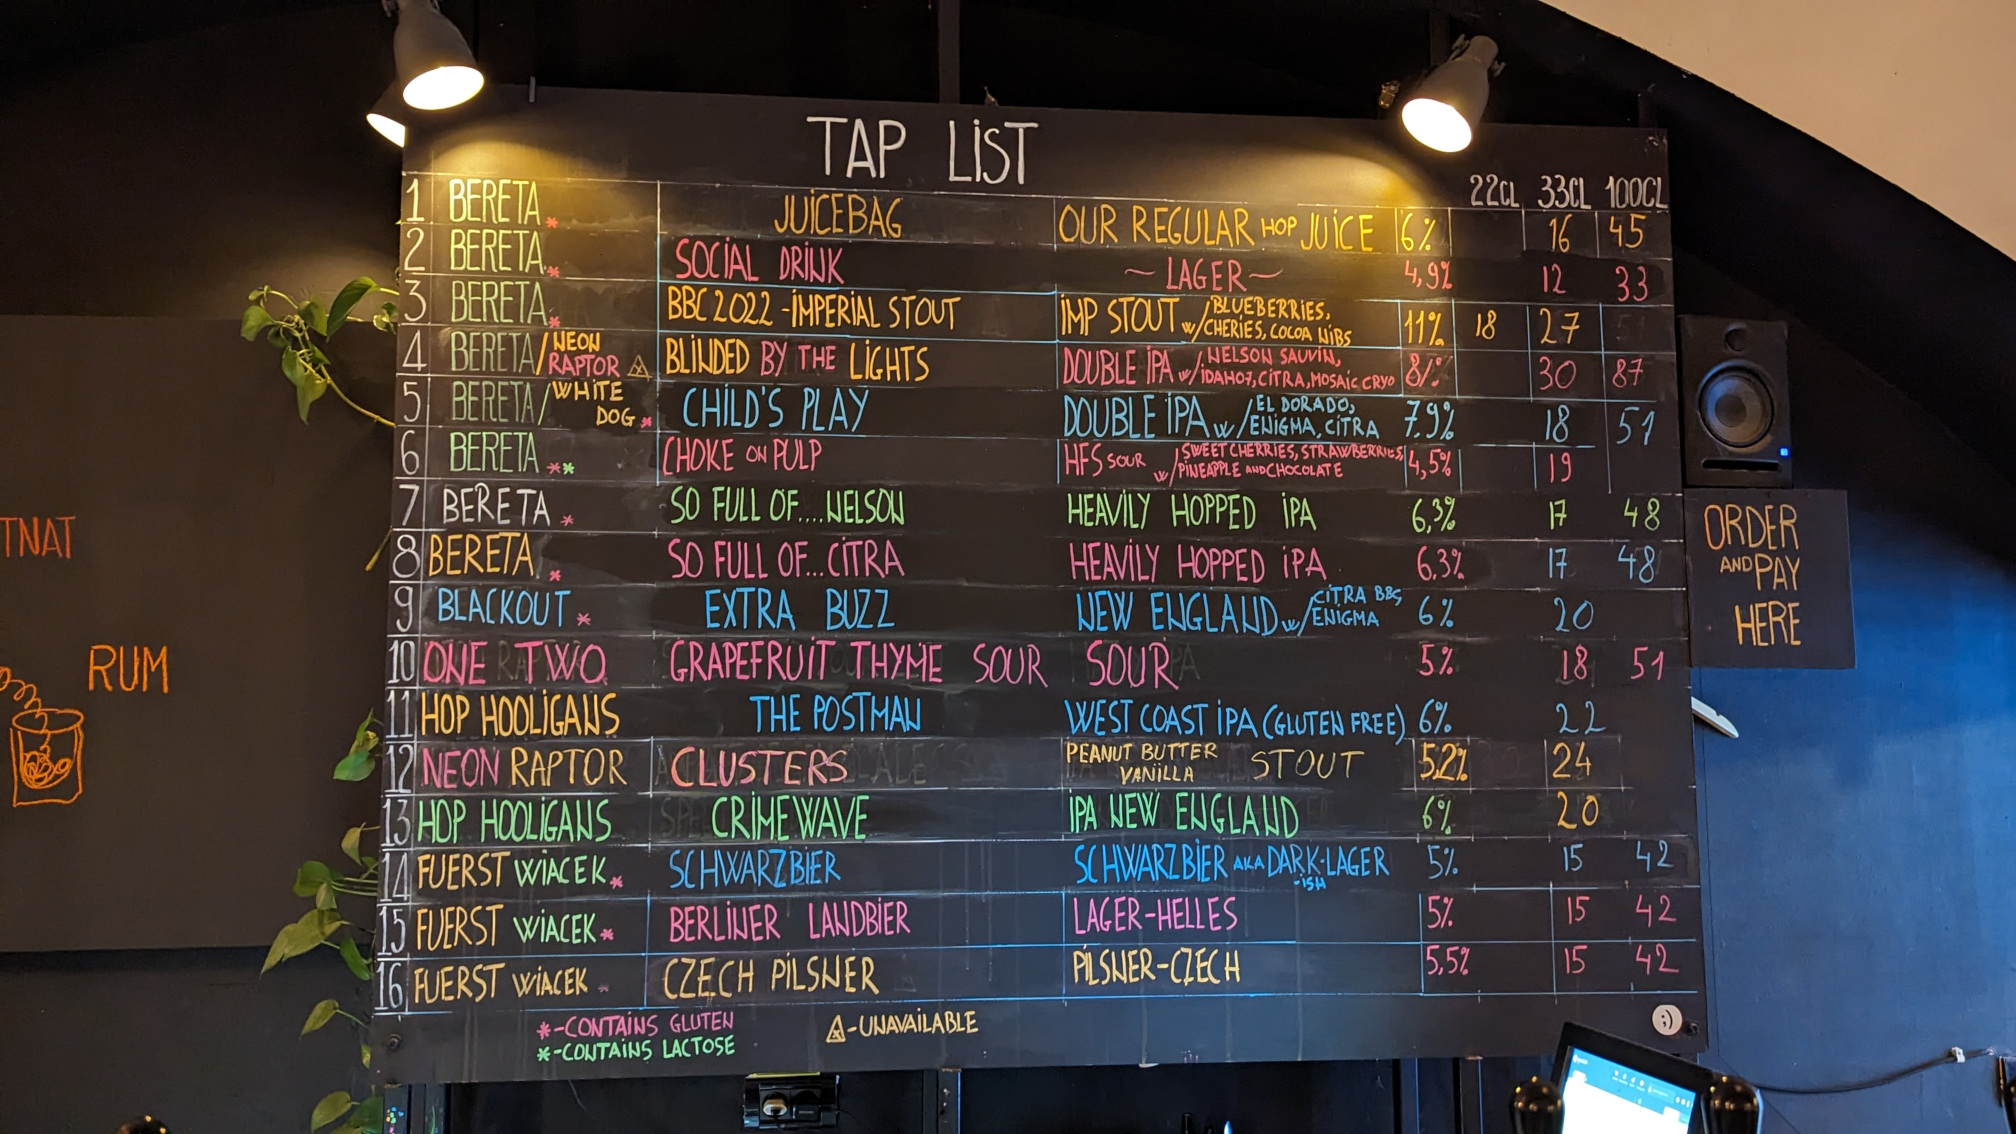 TAP LIST
22CL 33CL 100CL
1 BERETA * JUICEBAG OUR REGULAR HOP JUICE 6% 16 45
2 BERETA * SOCIAL DRINK ~ LAGER ~ 4,9% 12 33
3 BERETA * BBC 2022 - IMPERIAL STOUT IMP STOUT w/ BLUEBERRIES, CHERIES, COCOA NIBS 11% 18 27
4 BERETA / NEON RAPTOR BLINDED BY THE LIGHTS DOUBLE IPA w/ NELSON SAUVIN, IDAHO7, CITRA, MOSAIC CRYO 8% 30 87
5 BERETA / WHITE DOG * CHILD'S PLAY DOUBLE IPA w/ EL DORADO, ENIGMA, CITRA 7.9% 18 51
6 BERETA ** CHOKE ON PULP HFS SOUR w/ SWEET CHERRIES, STRAWBERRIES, PINEAPPLE AND CHOCOLATE 4,5% 19
7 BERETA * SO FULL OF....NELSON HEAVILY HOPPED IPA 6,3% 17 48
8 BERETA * SO FULL OF...CITRA HEAVILY HOPPED IPA 6.3% 17 48
9 BLACKOUT * EXTRA BUZZ NEW ENGLAND w/ CITRA BBC, ENIGMA 6% 20
10 ONE TWO GRAPEFRUIT THYME SOUR SOUR 5% 18 51
11 HOP HOOLIGANS THE POSTMAN WEST COAST IPA (GLUTEN FREE) 6% 22
12 NEON RAPTOR CLUSTERS PEANUT BUTTER VANILLA STOUT 5.2% 24
13 HOP HOOLIGANS CRIMEWAVE IPA NEW ENGLAND 6% 20
14 FUERST WIACEK * SCHWARZBIER SCHWARZBIER AKA DARK-LAGER -ISH 5% 15 42
15 FUERST WIACEK * BERLINER LANDBIER LAGER-HELLES 5% 15 42
16 FUERST WIACEK CZECH PILSNER PILSNER-CZECH 5,5% 15 42
*-CONTAINS GLUTEN
*-CONTAINS LACTOSE
-UNAVAILABLE
;)
ORDER
AND PAY
HERE
TNAT
RUM